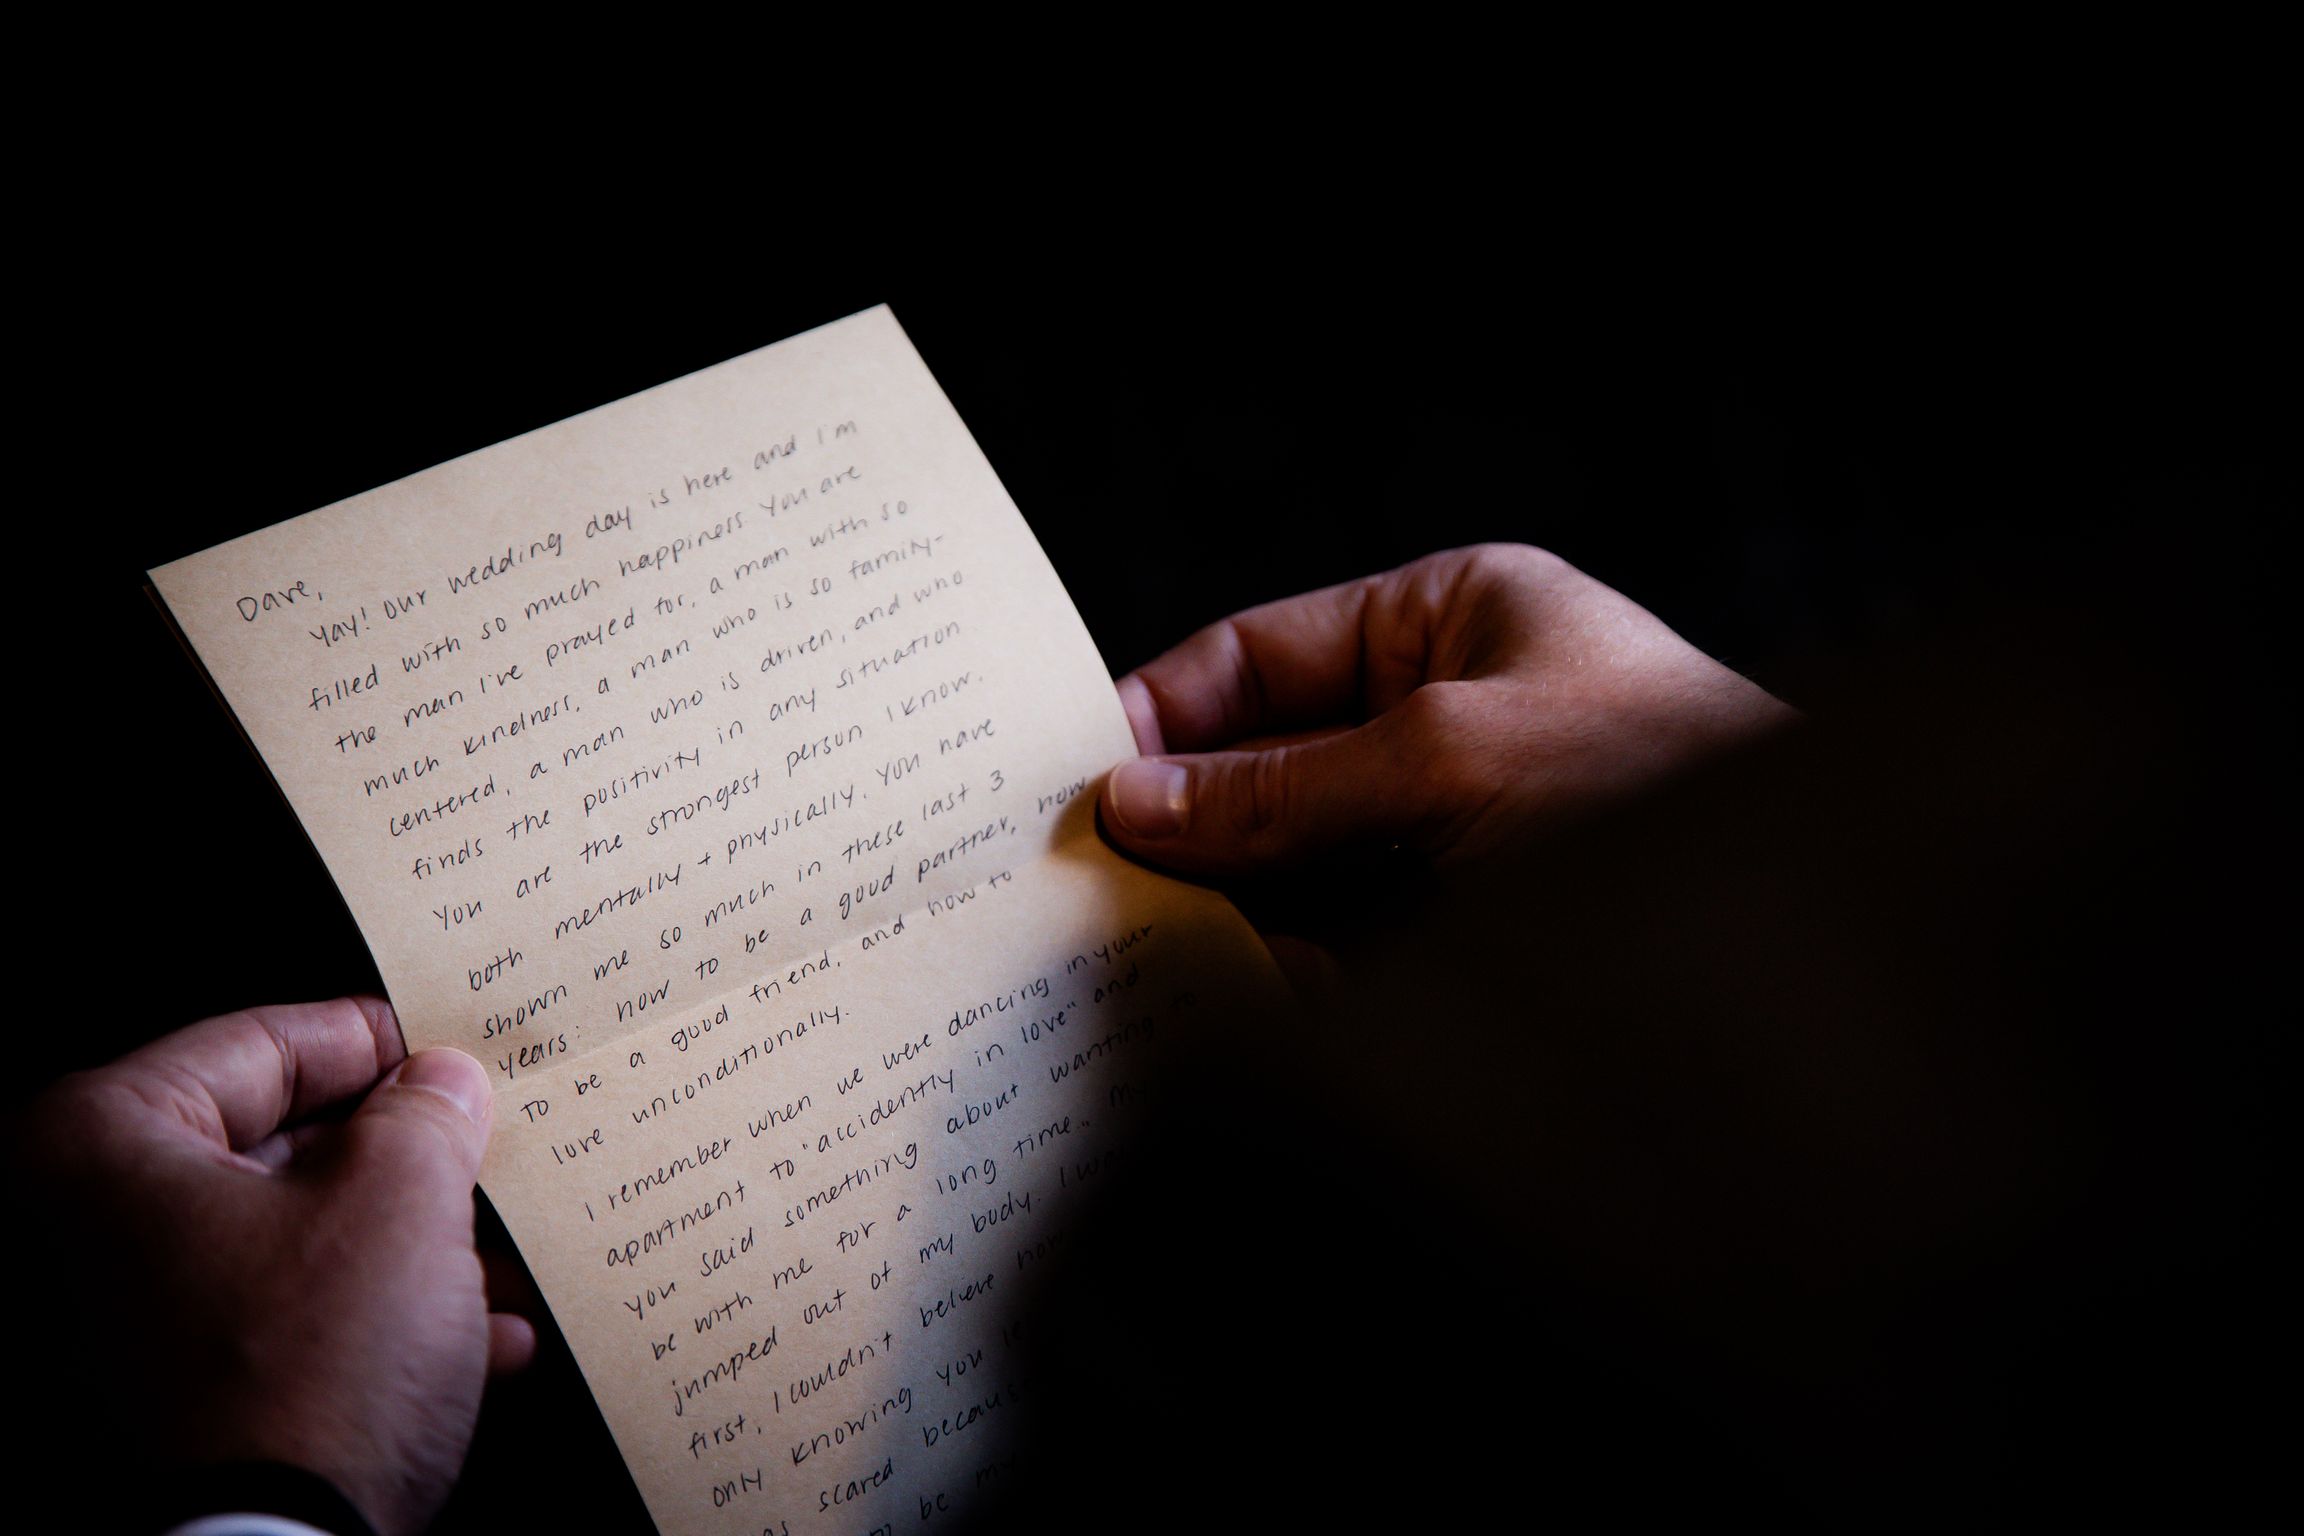 Dave,
Yay! Our wedding day is here and I'm
filled with so much happiness. You are
the man I've prayed for, a man with so
much kindness, a man who is so family-
centered, a man who is driven, and who
finds the positivity in any situation
You are the strongest person I know.
both mentally + physically. You have
shown me so much in these last 3
years: how to be a good partner, how
to be a good friend, and how to
love unconditionally.
I remember when we were dancing in your
apartment to "accidently in love" and
you said something about wanting to
be with me for a long time.. My
jumped out of my body. I
first, I couldn't believe how
only knowing you
as scared because
to be my